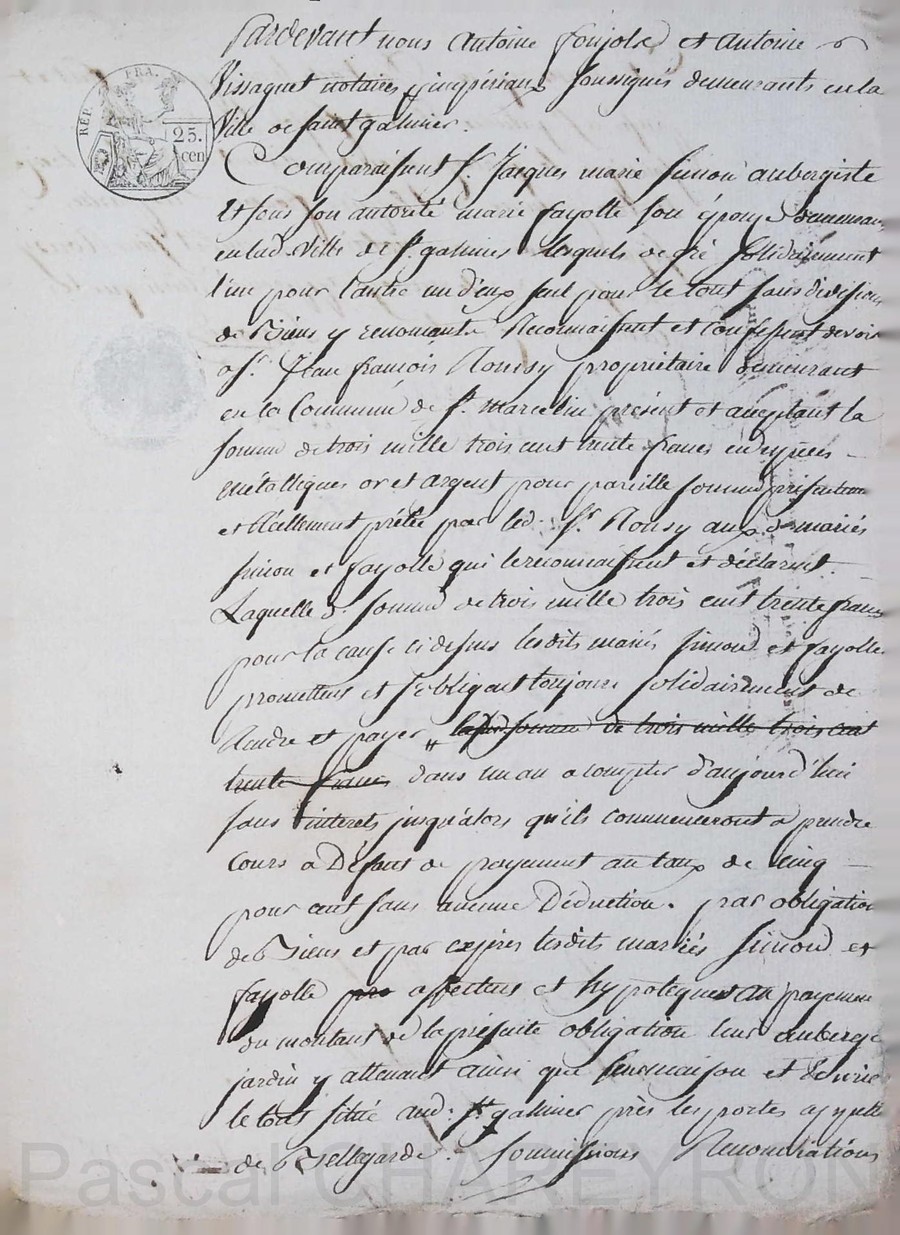 Pardevant nous Antoine foujols et Antoine
Vissaguet notaires impériaux soussignés demeurants en la
Ville de saint galmier.
REP. FRA.
25.
cen
Comparaissent Sr. Jacques marie simon aubergiste
Et sous son autorité marie fayolle son épouse demeurans
en lad. Ville de St. galmier lesquels de gré solidairement
l'un pour l'autre un d'eux seul pour le tout sans division
de Biens y renonçants Reconnaissent et confessent devoir
a Sr. Jean françois Roussy propriétaire demeurant
en la Commune de St. Marcelin présent et acceptant la
somme de trois mille trois cent trente francs en espèces
métalliques or et argent pour pareille somme
et Réellement prêtée par led. Sr. Roussy aux d. mariés
simon et fayolle qui le reconnaissent et déclarent.
Laquelle d. somme de trois mille trois cent trente francs
pour la cause ci dessus lesdits mariés simon et fayolle
promettent et s'obligent toujours solidairement de
Rendre et payer lad. somme de trois mille trois cent
trente francs dans un an a compter d'aujourd'hui
sans interets jusqu'alors qu'ils commenceront a prendre
cours a Défaut de payement au taux de cinq
pour cent sans aucune Déduction. par obligation
de Biens et par exprès lesdits mariés Simon et
fayolle pro affectent et hypotequent au payement
du montant de la présente obligation leur auberge
jardin y attenant ainsi que leur maison et Ecurie
le tout situé aud. St. galmier près les portes appellé
de Bellegarde. soumissions Renonciations
Pascal CHAREYRON